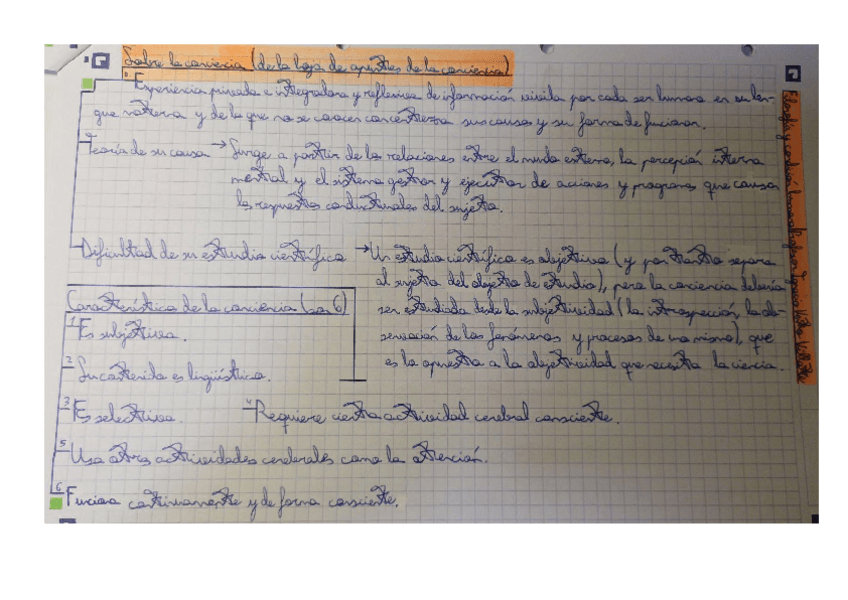 Sobre la conciencia (de la hoja de apuntes de la conciencia)
Experiencia privada e integradora y reflexiva de información vivida por cada ser humano en su len-
gua materna y de la que no se conocen concretamente sus causas y su forma de funcionar.
Teoría de su causa → Surge a partir de las relaciones entre el mundo externo, la percepción interna
mental y el sistema gestor y ejecutor de acciones y programas que causan
las respuestas conductuales del sujeto.
Dificultad de su estudio científico → Un estudio científico es objetivo (y por tanto separa
al sujeto del objeto de estudio), pero la conciencia debería
ser estudiada desde la subjetividad (la introspección, la ob-
servación de los fenómenos y procesos de uno mismo), que
es la opuesta a la objetividad que necesita la ciencia.
Características de la conciencia (son 6)
1 Es subjetiva.
2 Su contenido es lingüístico.
3 Es selectiva. 4 Requiere cierta actividad cerebral consciente.
5 Usa otras actividades cerebrales como la atención.
6 Funciona continuamente y de forma consciente.
Filosofía y condición humana